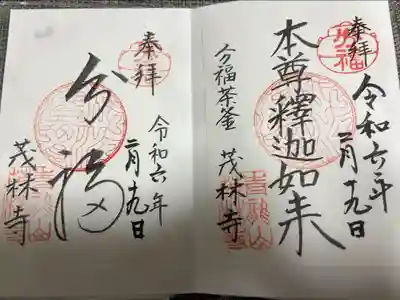 奉拝
分福
令和六年
二月十九日
本尊釋迦如来
分福茶釜 茂林寺
青龍山
奉拝
令和六年
二月十九日
分福
茂林寺